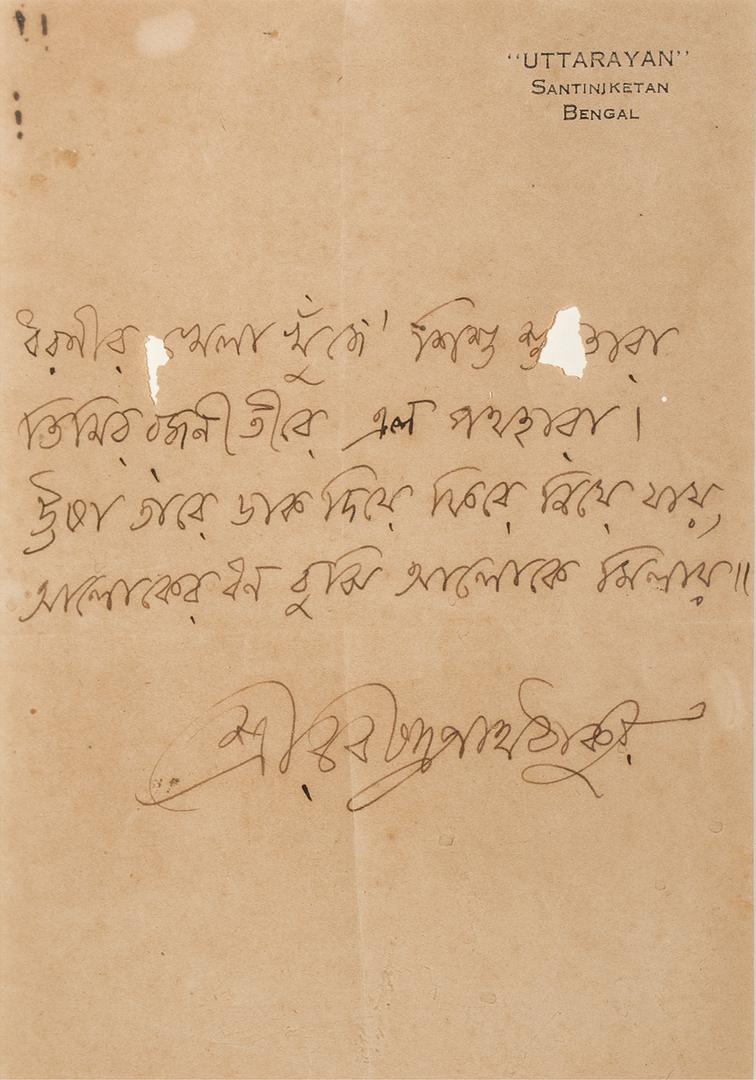 "UTTARAYAN"
SANTINIKETAN
BENGAL
ধরণীর খেলা খুঁজে' শিশু শু তারা
তিমির রজনীতীরে এল পথহারা।
উষা তারে ডাক দিয়ে ফিরে নিয়ে যায়,
আলোকের ধন বুঝি আলোকে মিলায়॥
শ্রীরবীন্দ্রনাথ ঠাকুর